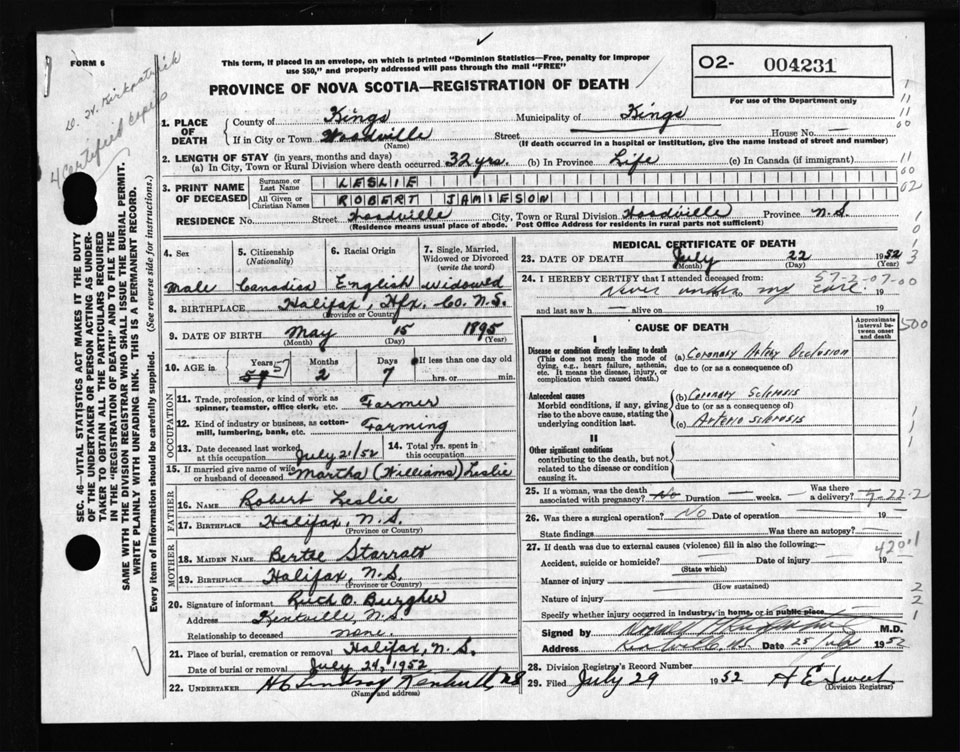 FORM 6
This form, if placed in an envelope, on which is printed "Dominion Statistics—Free, penalty for improper
use $50," and properly addressed will pass through the mail "FREE"
PROVINCE OF NOVA SCOTIA—REGISTRATION OF DEATH
02- 004231
For use of the Department only
D. W. Kirkpatrick
4 Certified copies
1. PLACE OF DEATH
County of Kings Municipality of Kings
If in City or Town Woodville Street House No. —
(Name) (If death occurred in a hospital or institution, give the name instead of street and number)
2. LENGTH OF STAY (in years, months and days)
(a) In City, Town or Rural Division where death occurred 32 yrs. (b) In Province Life (c) In Canada (if immigrant)
3. PRINT NAME OF DECEASED
Surname or Last Name LESLIE
All Given or Christian Names ROBERT JAMIESON
RESIDENCE No. Street Woodville City, Town or Rural Division Woodville Province N.S.
(Residence means usual place of abode. Post Office Address for residents in rural parts not sufficient)
SEC. 46—VITAL STATISTICS ACT MAKES IT THE DUTY
OF THE UNDERTAKER OR PERSON ACTING AS UNDER-
TAKER TO OBTAIN ALL THE PARTICULARS REQUIRED
IN THE "REGISTRATION OF DEATH" AND TO FILE THE
SAME WITH THE DIVISION REGISTRAR WHO SHALL ISSUE THE BURIAL PERMIT.
WRITE PLAINLY WITH UNFADING INK. THIS IS A PERMANENT RECORD.
Every item of information should be carefully supplied. (See reverse side for instructions.)
4. Sex
5. Citizenship (Nationality)
6. Racial Origin
7. Single, Married, Widowed or Divorced (write the word)
Male Canadian English Widowed
8. BIRTHPLACE Halifax, Hfx. Co. N.S.
(Province or Country)
9. DATE OF BIRTH May 15 1895
(Month) (Day) (Year)
10. AGE in Years Months Days If less than one day old
57 2 7 hrs. or min.
OCCUPATION
11. Trade, profession, or kind of work as
spinner, teamster, office clerk, etc. Farmer
12. Kind of industry or business, as cotton-
mill, lumbering, bank, etc. Farming
13. Date deceased last worked at this occupation July 21/52
14. Total yrs. spent in this occupation
15. If married give name of wife or husband of deceased Martha (Williams) Leslie
FATHER
16. NAME Robert Leslie
17. BIRTHPLACE Halifax, N.S.
(Province or Country)
MOTHER
18. MAIDEN NAME Bertie Starratt
19. BIRTHPLACE Halifax, N.S.
(Province or Country)
20. Signature of informant O. Burgher
Address Kentville, N.S.
Relationship to deceased none
21. Place of burial, cremation or removal Halifax, N.S.
Date of burial or removal July 24, 1952
22. UNDERTAKER H C Lindsay Kentville, NS
(Name and address)
MEDICAL CERTIFICATE OF DEATH
23. DATE OF DEATH July 22 1952
(Month) (Day) (Year)
24. I HEREBY CERTIFY that I attended deceased from: 57-2-07-00
never under to my care 19
and last saw h — alive on 19
CAUSE OF DEATH
Approximate interval between onset and death
I
Disease or condition directly leading to death
(This does not mean the mode of
dying, e.g., heart failure, asthenia,
etc. It means the disease, injury, or
complication which caused death.)
(a) Coronary Artery Occlusion
due to (or as a consequence of)
Antecedent causes
Morbid conditions, if any, giving
rise to the above cause, stating the
underlying condition last.
(b) Coronary Sclerosis
due to (or as a consequence of)
(c) Arterio sclerosis
II
Other significant conditions
contributing to the death, but not
related to the disease or condition
causing it.
25. If a woman, was the death associated with pregnancy? No Duration — weeks. — Was there a delivery?
26. Was there a surgical operation? No Date of operation — 19
State findings Was there an autopsy?
27. If death was due to external causes (violence) fill in also the following:— 420.1
Accident, suicide or homicide? Date of injury 19
(State which)
Manner of injury
(How sustained)
Nature of injury
Specify whether injury occurred in industry, in home, or in public place
Signed by M.D.
Address Kentville, NS Date 25 July 1952
28. Division Registrar's Record Number
29. Filed July 29 1952 H E Sweet
(Division Registrar)